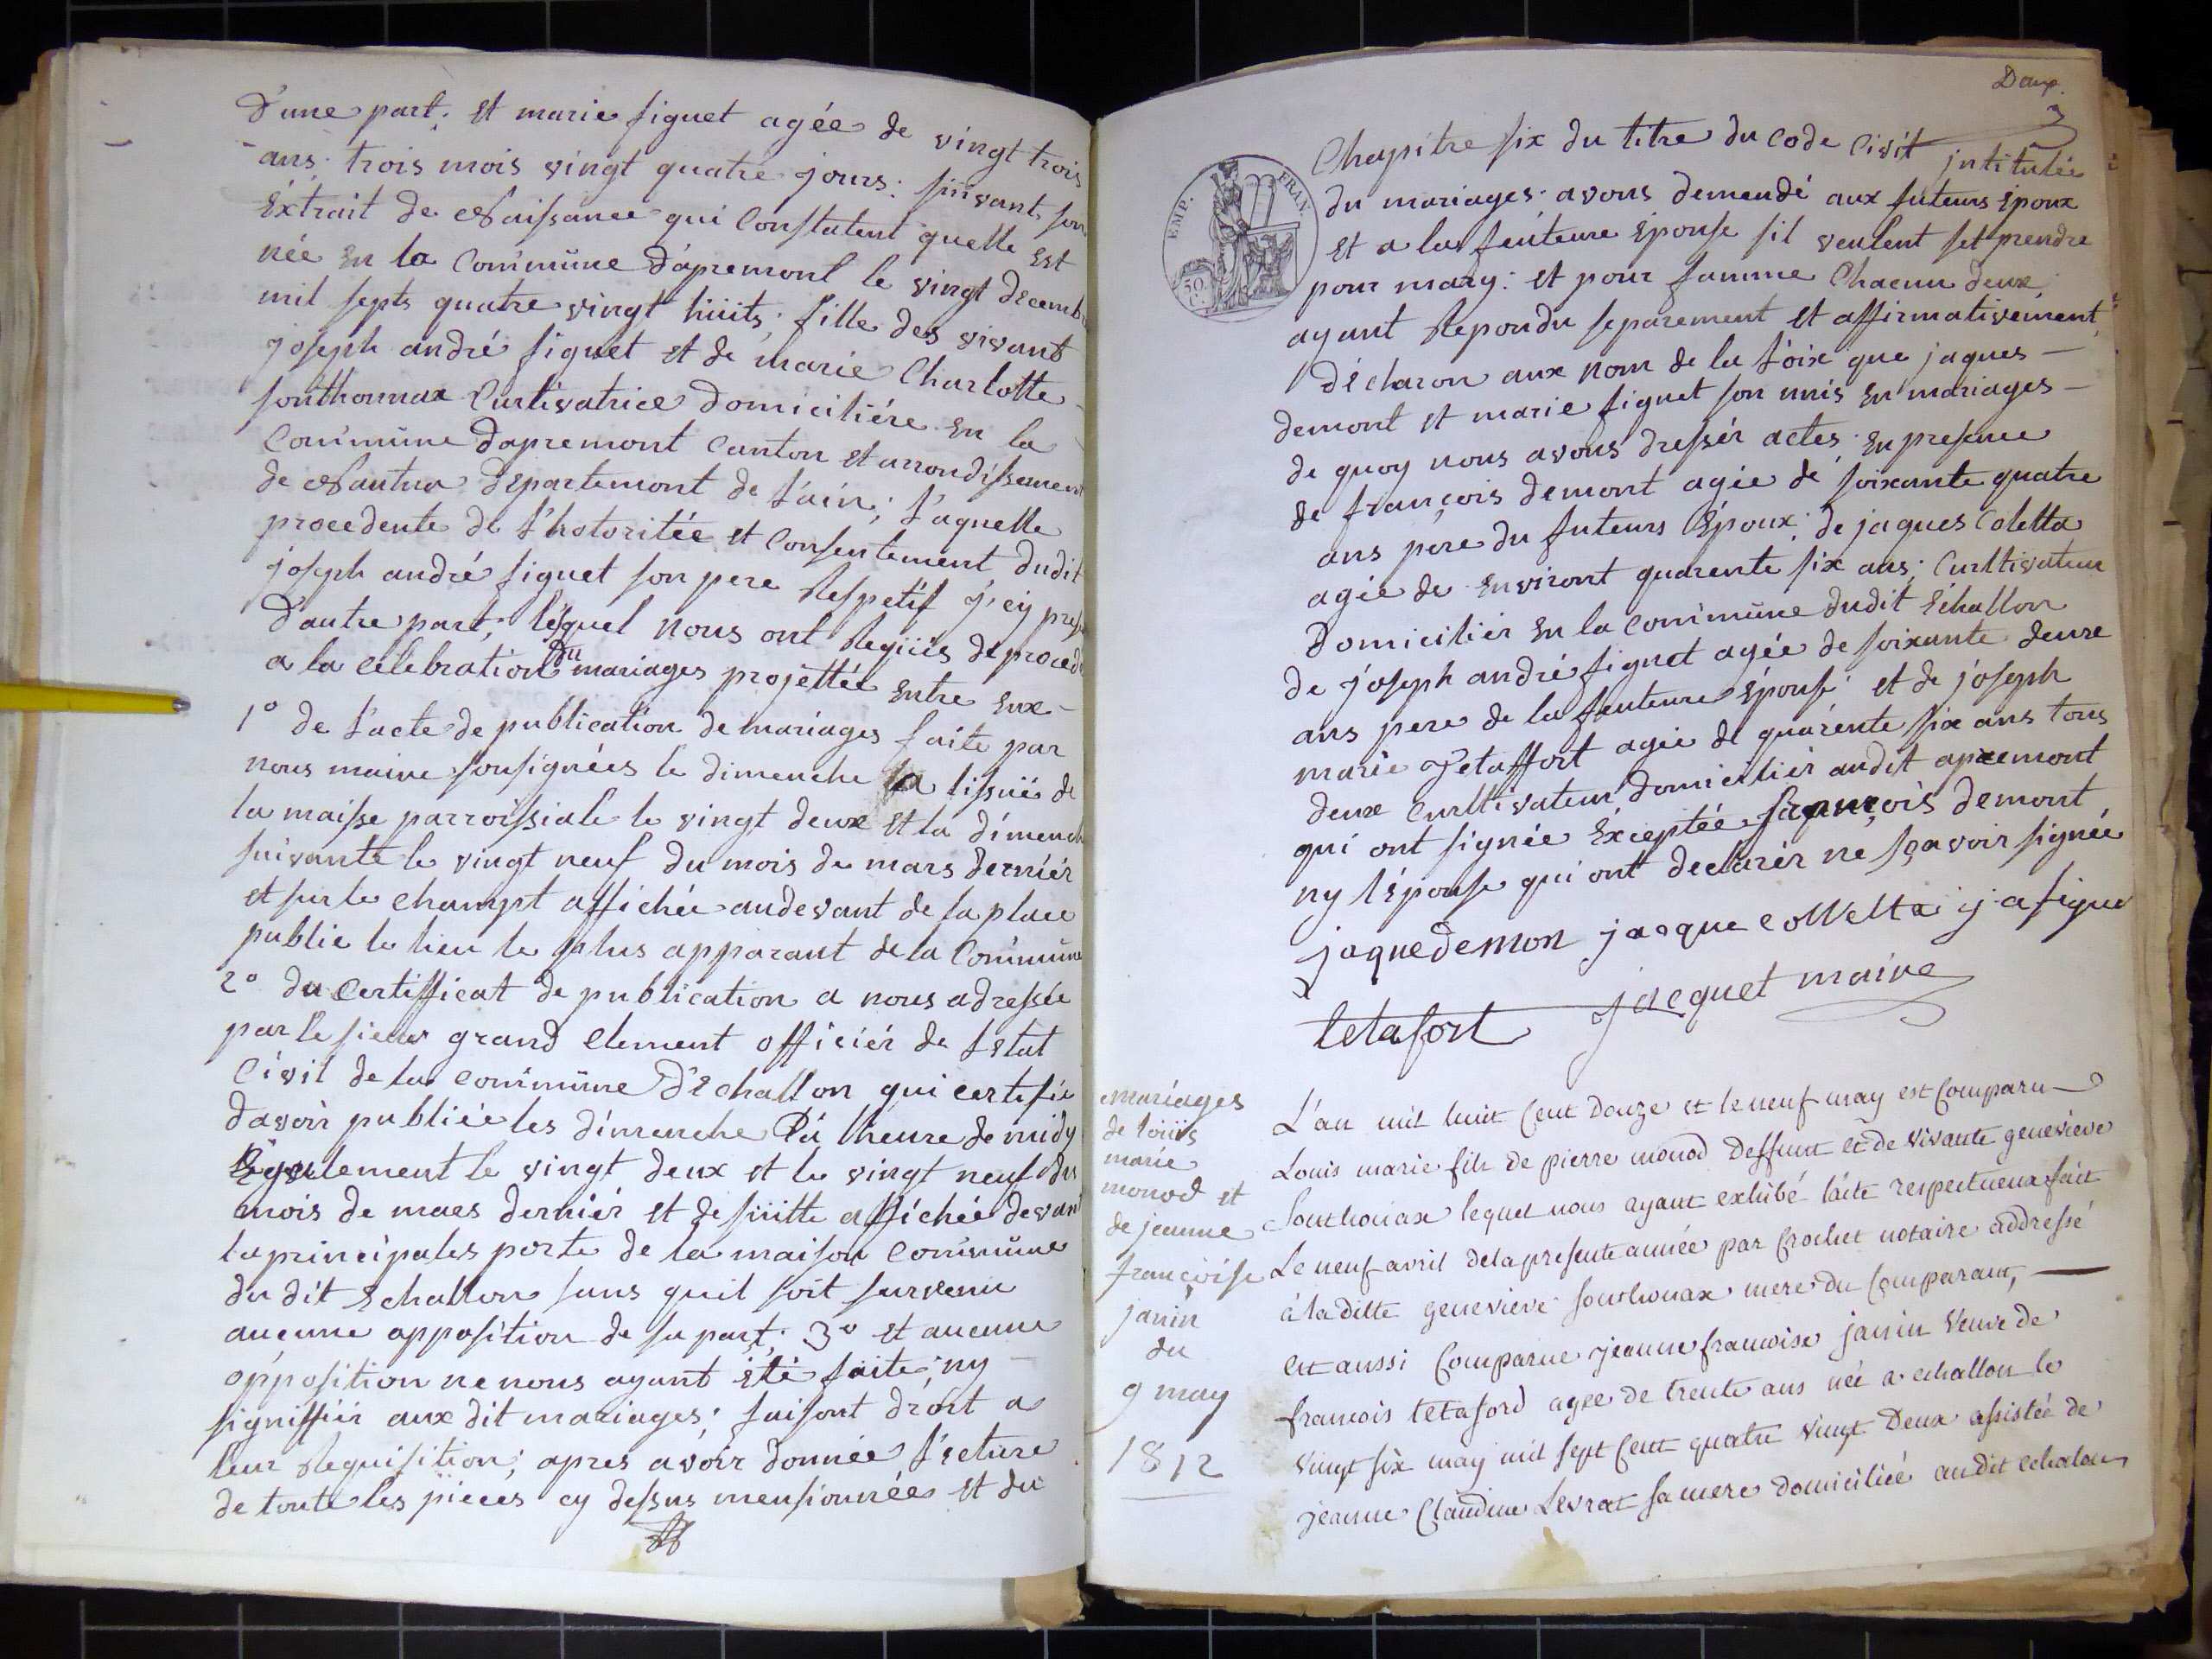 D'une part; et marie figuet agée de vingt trois
ans; trois mois vingt quatre jours: suivant son
Extrait de Naissance qui Constatent quelle Est
née En la Commune d'apremont le vingt decemb
mil septs quatre vingt huits; fille des vivant
joseph andré figuet et de marie Charlotte
sonthonnax Curtivatrice Domiciliére En la
Commune dapremont Canton et arrondissement
de Nantua Departemont de l'ain; laquelle
procedente de l'hotoritée et Consentement dudit
joseph andré figuet son pere Respetif j'cy pres
D'autre part; léquel nous ont Requis de proced
a la Célébration du mariages projettée Entre Eux
1° de l'acte de publication de mariages faite par
nous maire sousignées le dimenche a lissuë de
la maisse parroissiale le vingt deux et la dimench
suivante le vingt neuf du mois de mars derniér
et sur le champt affichée audevant de la place
public le lieu le plus apparant de la Commune
2° du Certifficat de publication a nous adressée
par le sieur grand Clement officiér de letat
Civil de la commune D'Echallon qui certifie
davoir publiée les dimenche a lheure de midy
Egalement le vingt deux et le vingt neuf du
mois de mars derniér et de suitte affichée devant
la principales porte de la maison Commune
du dit Echallon sans quil soit survenu
aucune opposition de sa part; 3° et aucune
opposition ne nous ayant été faite; ny
signiffiér aux dit mariages; faisont droit a
leur Requisition; apres avoir donnée lecture
de toute les pieces cy dessus mensionnée et du
Deup.
3
EMP. FRAN.
50 C.
Chapitre six du titre du Code Civil jntitulée
du mariages avons demendé aux futeurs époux
Et a la feuteure Epouse sil veulent set prendre
pour mary: et pour famme Chacun deux
ayant Repondu separement et affirmativement
déclaron aux nom de la loix que jaques
demont et marie figuet son unis En mariages
de quoy nous avons dressér actes En presence
de françois demont agée de soixante quatre
ans pere du futeurs Epoux; de jaques Coletta
agée de Environt quarente six ans; Curltivateur
Domiciliér En la Commune dudit Echallon
de joseph andré figuet agée de soixante deuxe
ans pere de la feuteure Epouse et de joseph
marie Tetaffort agée de quarente six ans tous
deux Curltivateur Domiciliér audit apremont
qui ont signée Exceptée françois demont
ny l'Epouse qui ont declarér ne sçavoir signée
jaque demon jacque collelta j a figue
tetafort jacquet maire
mariages
de loüis
marie
monod et
de jeanne
françoise
janin
du
9 may
1812
L'an mil huit Cent Douze et le neuf may est Comparu
Louis marie fils de pierre monod Deffunt et de vivante genevieve
Sonthonax lequel nous ayant exhibé lacte respectueux fait
Le neuf avril de la presente année par Crochet notaire addressé
à la ditte genevieve sonthonax mere du Comparant,
Est aussi Comparue jeanne francoise janin veuve de
francois tetaford agée de trente ans née a echallon le
vingt six may mil sept Cent quatre vingt Deux assistée de
jeanne Claudine Levrat sa mere domiciliée au dit echalon